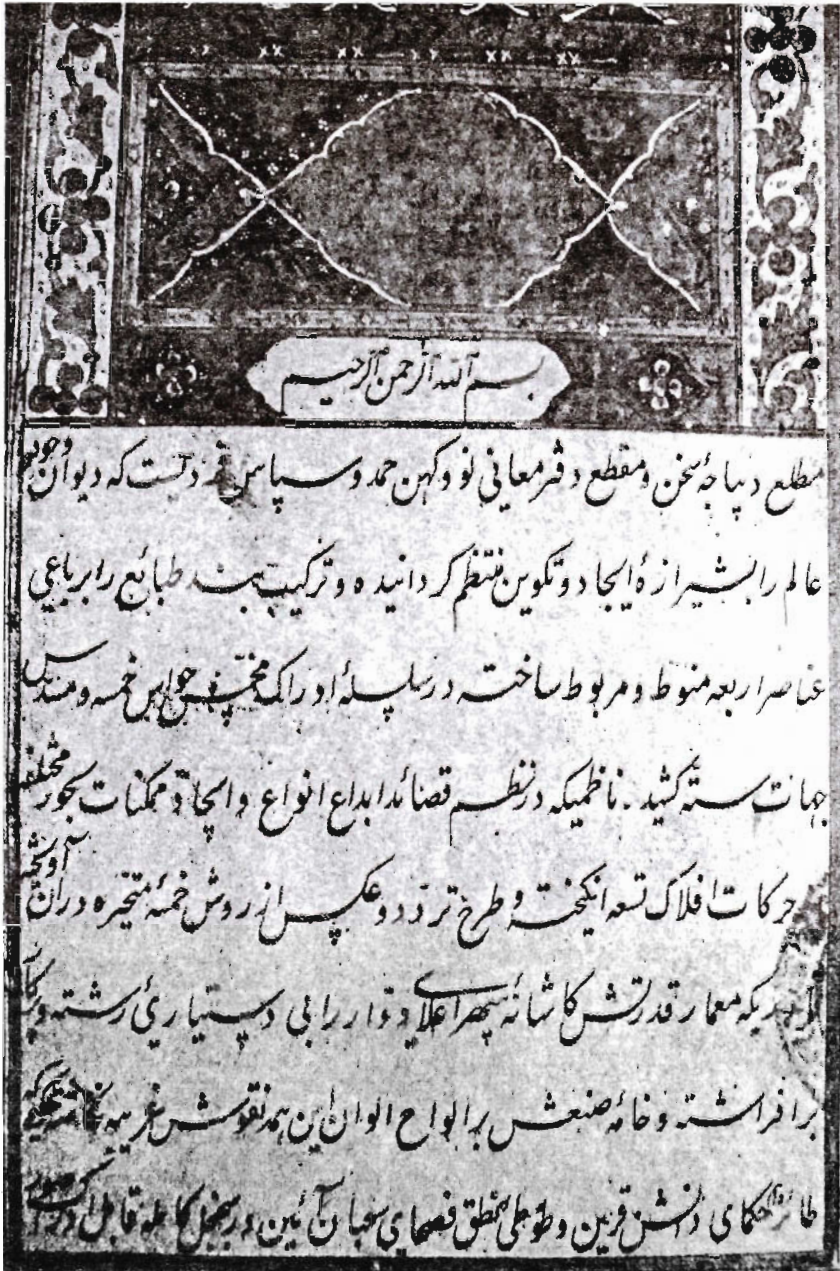 بسم الله الرحمن الرحیم
مطلع دیباجهٔ سخن و مقطع دفتر معانی نو و کهن حمد و سپاس که دیوان وجود
عالم را بشیرازهٔ ایجاد و تکوین منتظم کردانیده و ترکیب بند طبائع را برباعی
عناصر اربعه منوط و مربوط ساخته در سلسلهٔ ادراک مخمس حواس خمسه و مسدس
جهات سته کشید . ناظمیکه در نظم قصائد ابداع انواع و ایجاد ممکنات بحور مختلفه
حرکات افلاک تسعه انکیخته و طرح تردد و عکس از روش خمسهٔ متحیره در ان آویخته
معمار قدرتش کاشانهٔ سپهر اعلای دوار را بی دستیاری رشته و
برافراشته و خامهٔ صنعش بر الواح الوان این همه نقوش غریبه
حکمای دانش قرین و طوطی منطق فصحای سحبان آئین در